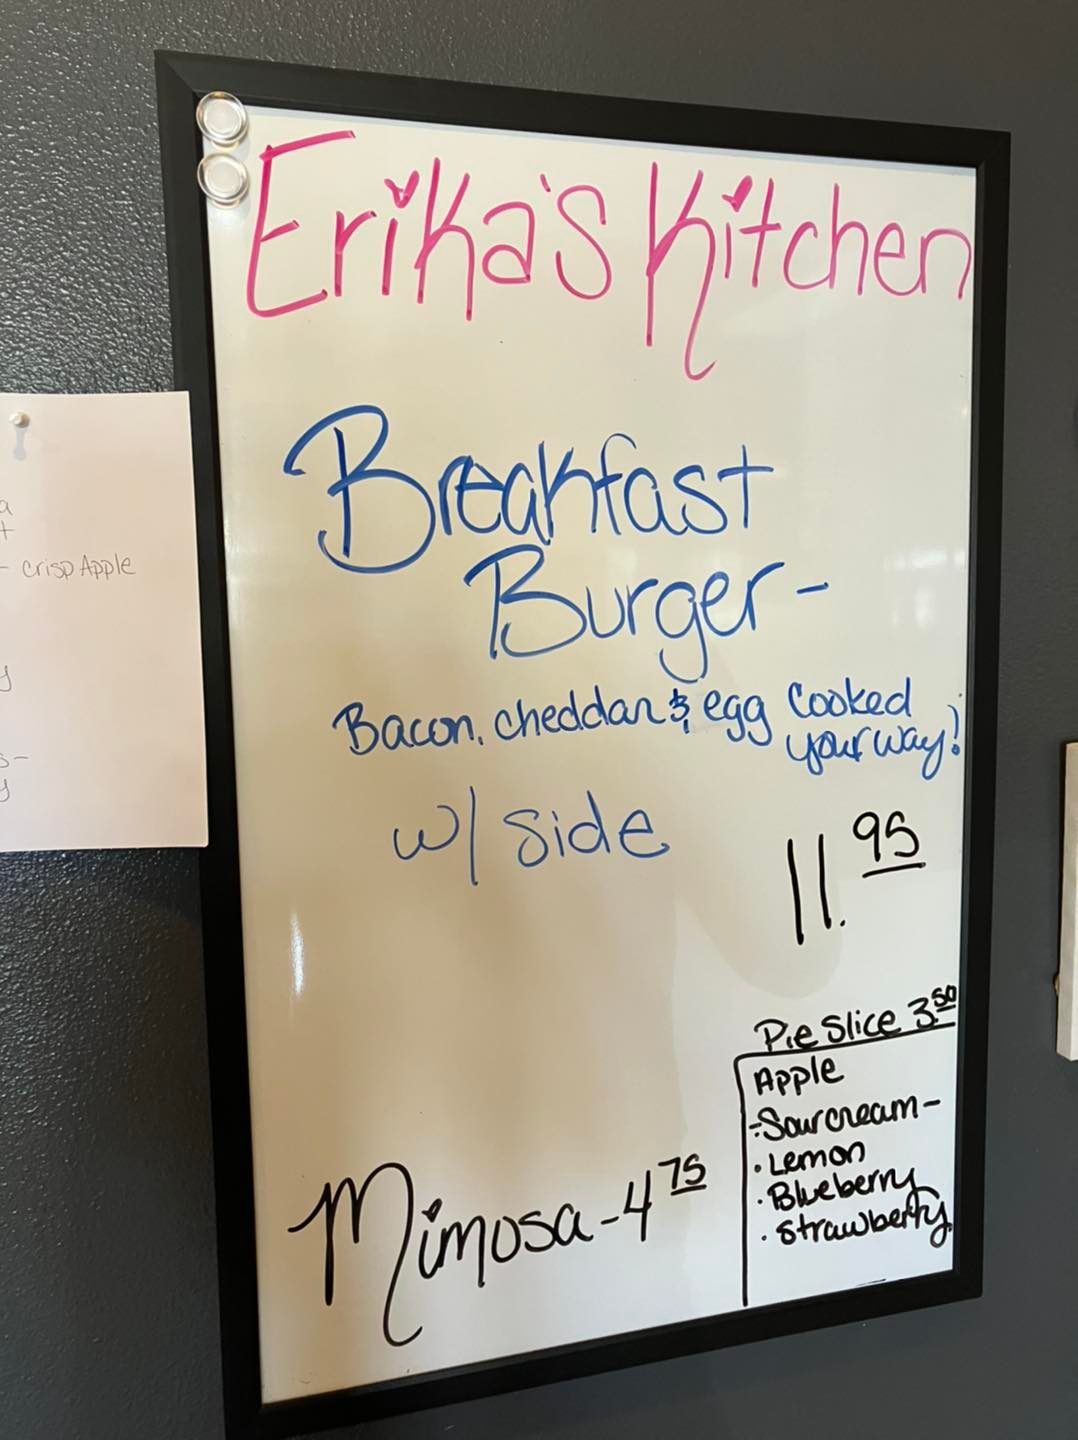 Erika's Kitchen
Breakfast
Burger-
Bacon, cheddar & egg cooked
your way!
w/ side
11.95
Pie Slice 3.50
Apple
-Sourcream-
· Lemon
· Blueberry
· Strawberry
Mimosa - 4 75
- crisp Apple